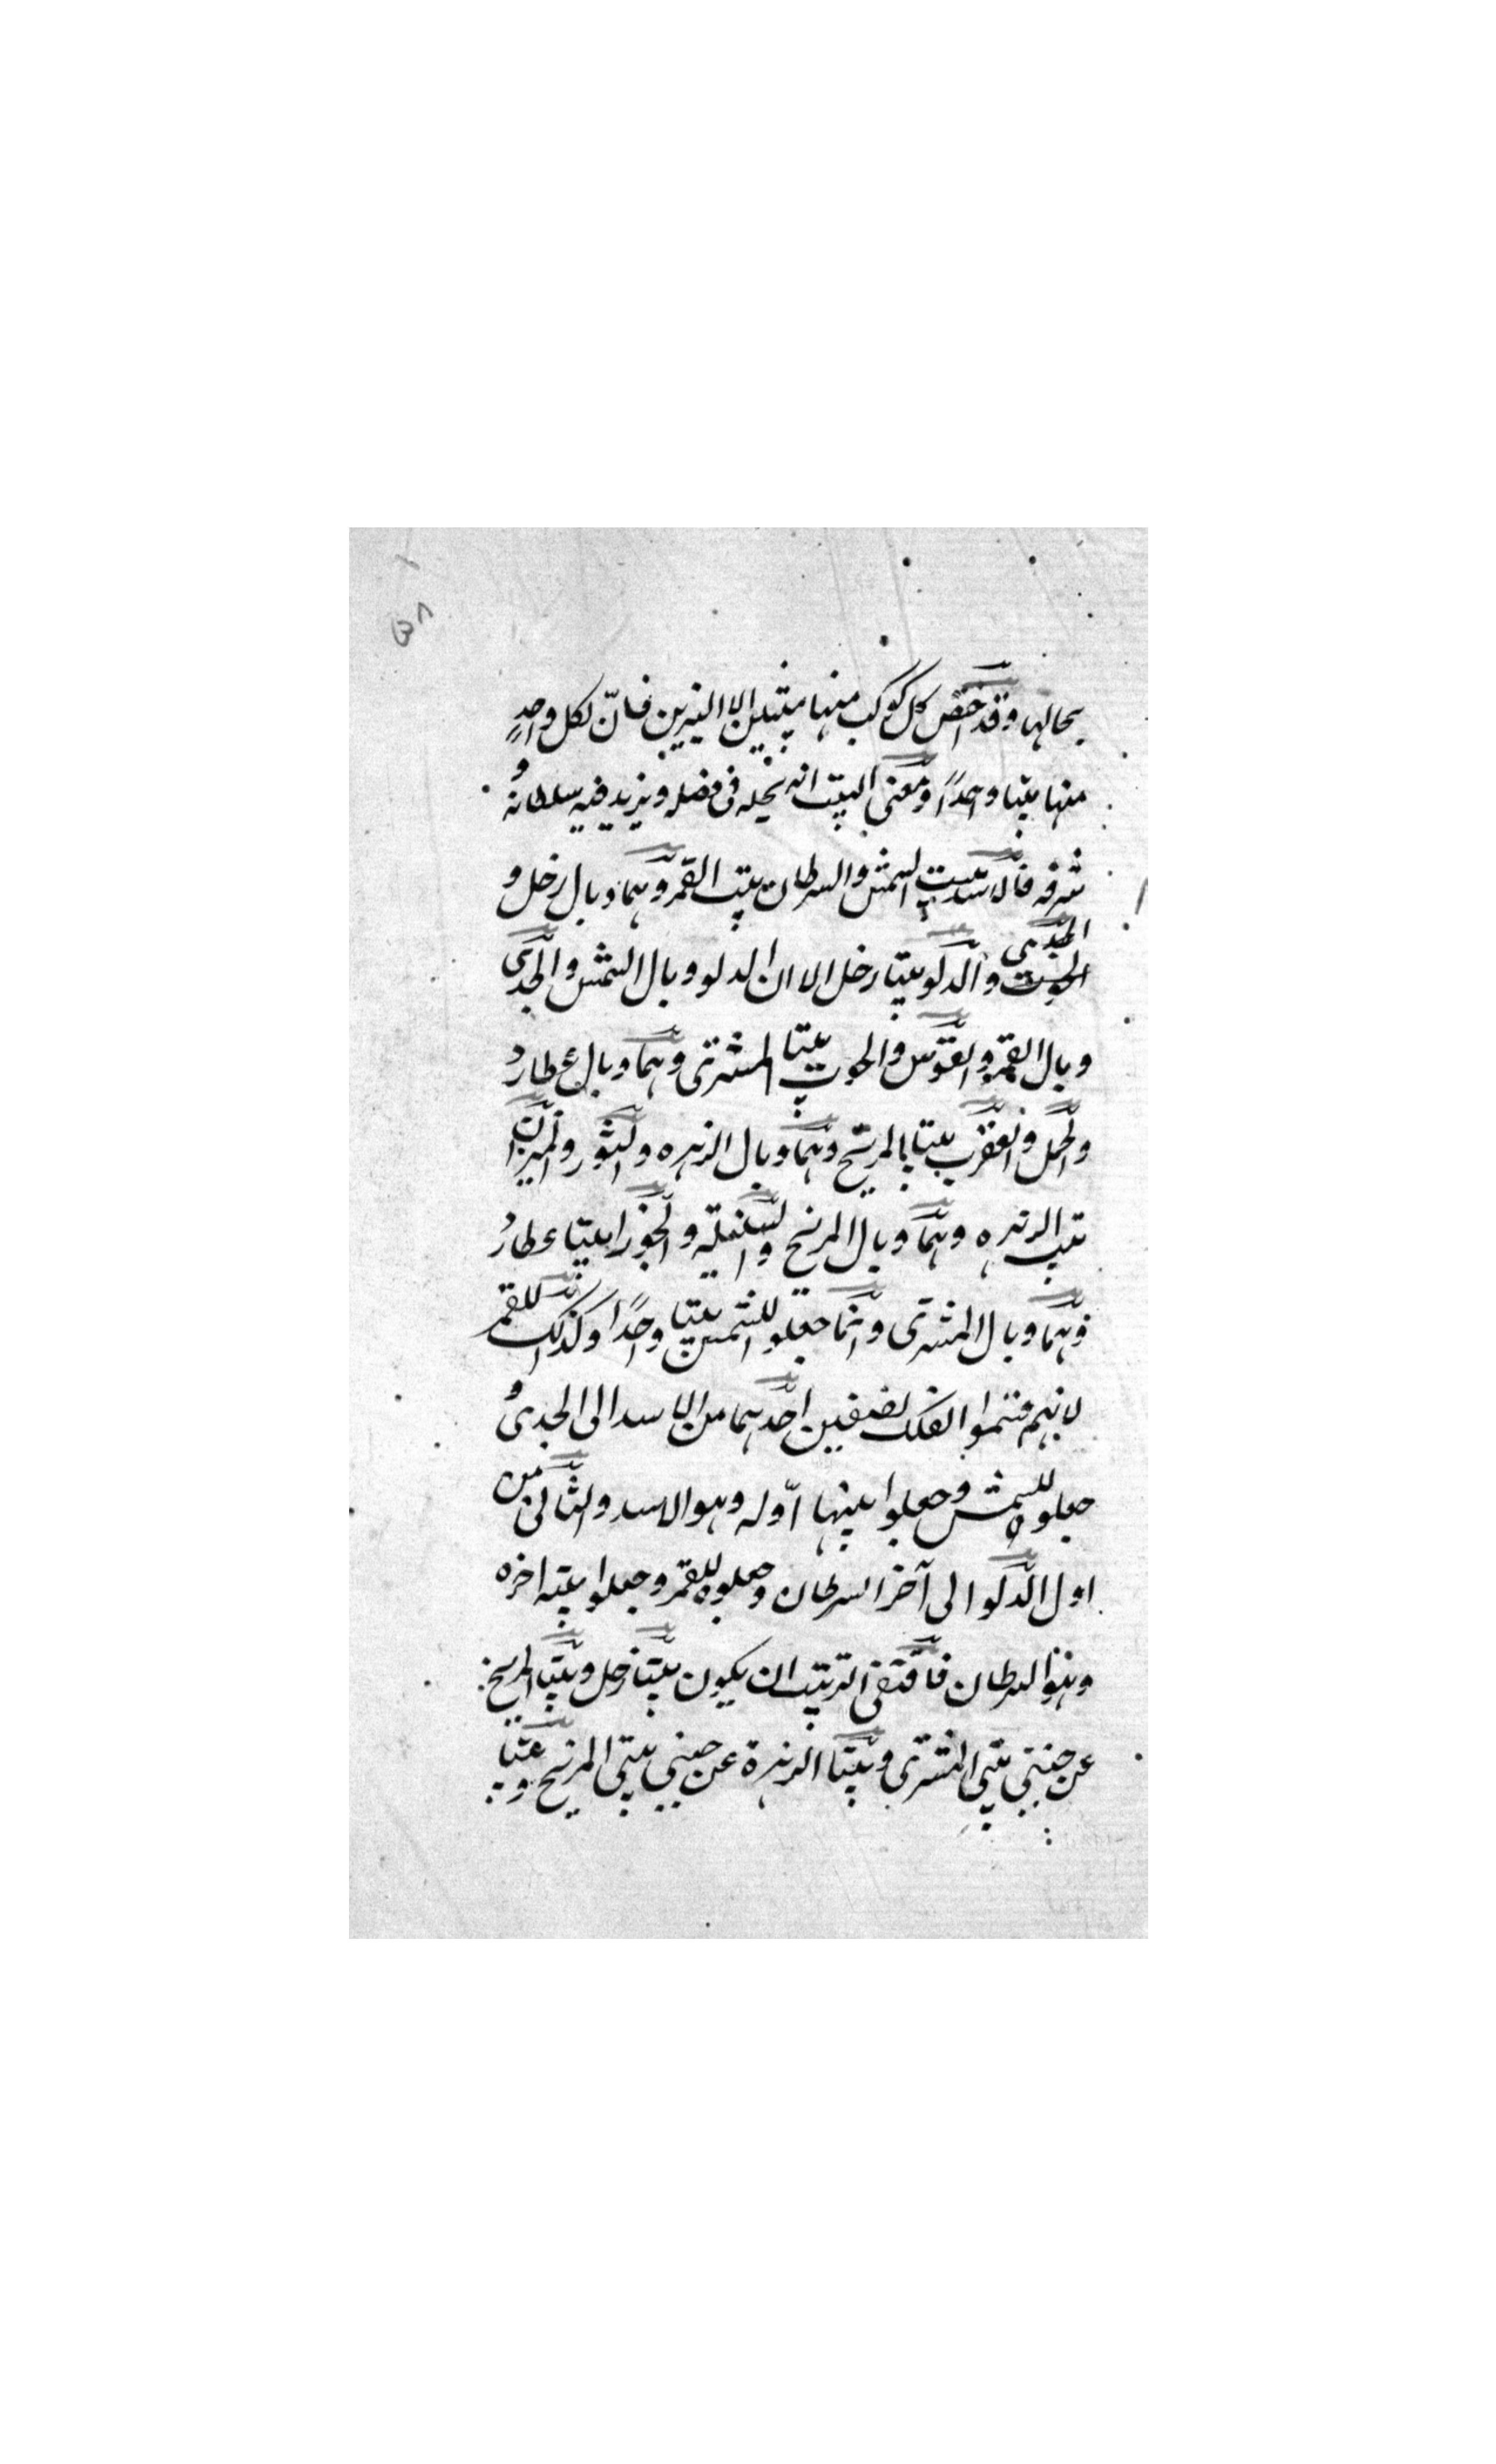 ٣٨
بحالها وقد اختص كل كوكب منها ببيتين الا النيرين فانّ لكل واحدٍ
منها بيتا واحدًا ومعنى البيت انه يحله فى فضله ويزيد فيه سلطانه و
شرفه فالاسد بيت الشمس والسرطان بيت القمر وهما وبال زحل و
الجدى
الحوت والدلو بيتا زحل الا ان الدلو وبال الشمس والجدى
وبال القمر والقوس والحوت بيتا المشترى وهما وبال عطارد
والحمل والعقرب بيتا المريخ وهما وبال الزهره والثور والميزان
بيت الزهره وهما وبال المريخ والسنبلة والجوزا بيتا عطارد
وهما وبال المشترى وانما جعلو للشمس بيتا واحدًا وكذلك للقمر
لانهم قسموا الفلك نصفين احدهما من الاسد الى الجدى و
جعلوه للشمس وجعلوا بيتها اوّله وهو الاسد والثانى من
اول الدلو الى آخر السرطان وجعلوه للقمر وجعلوا بيته اخره
وهو السرطان فاقتضى الترتيب ان يكون بيتا زحل وبيتا المريخ
عن جنبتى بيتى المشترى وبيتا الزهرة عن جنبتى بيتى المريخ وبيتا